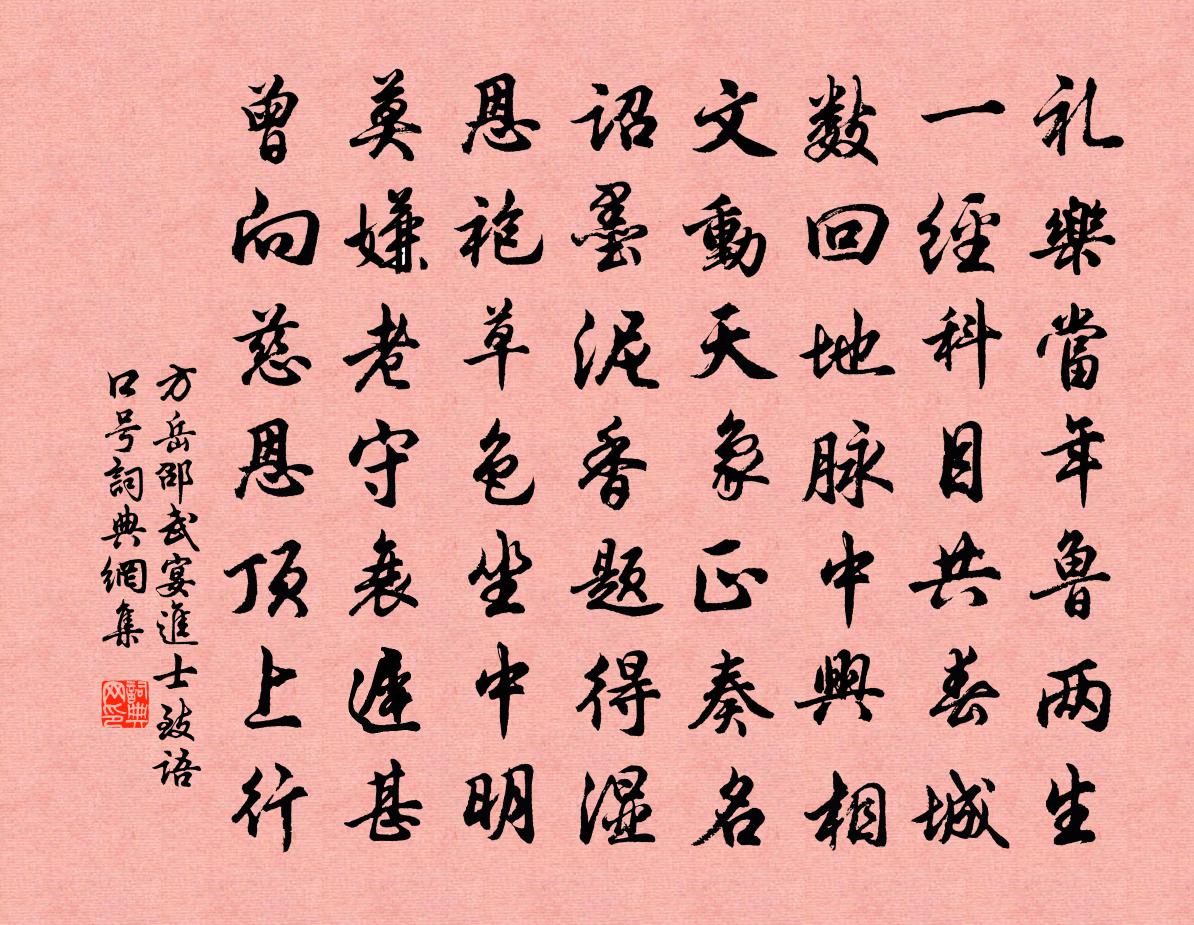 礼樂當年魯两生
一經科目共春城
数回地脉中興相
文動天象正奏名
詔墨泥香题得湿
恩袍草色坐中明
莫嫌老守衰遲甚
曾向慈恩顶上行
方岳邵武宴進士致语
口号詞典網集
詞典网印